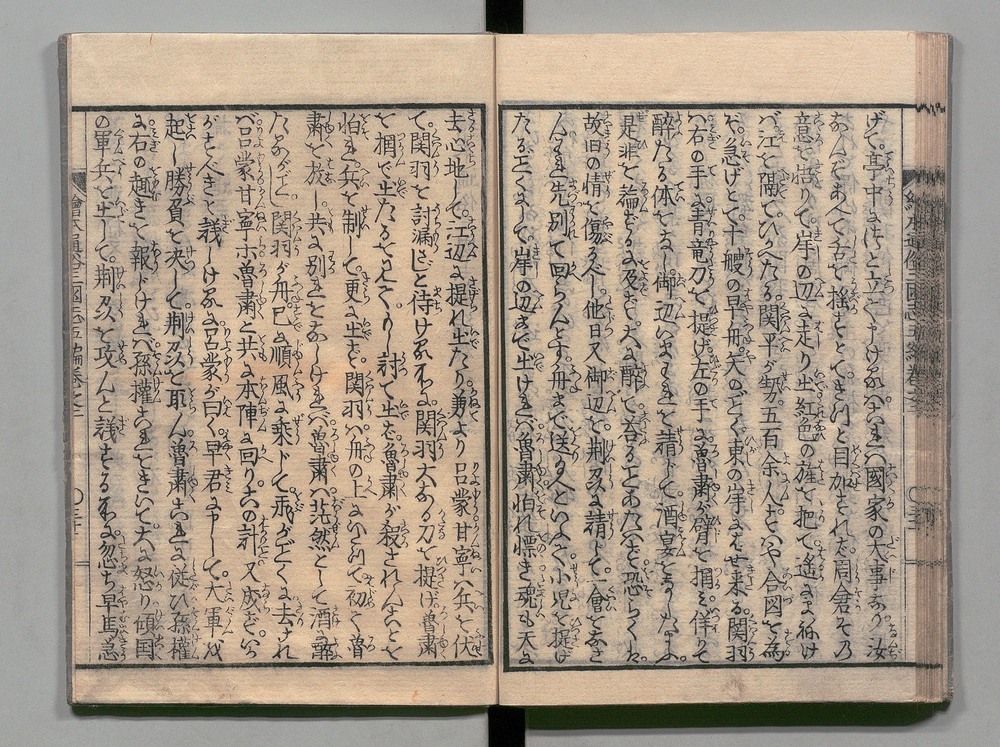 げて亭中につと立とゞけるハこれハ國家の大事なり汝
なんぞあへて舌を揺すとてきつと目加せされバ周倉その
意を悟りて岸の辺に走り出紅の旌を把て遙に招け
バ江を隔てひかへたる関平が勢五百余人すハや合図を為
ぞ急げとて十艘の早舟矢のごとく東の岸に馳来る関羽
ハ右の手に青竜刀を提げ左の手に魯粛が臂を掴ミ佯て
酔たる体をなし御辺いまわれを請じて酒宴をなしたまふ
是非を論ずるに及ばず大に酔て答ることあたハず恐らくハ
故旧の情を傷るべし他日又御辺を荆州に請じて一會をなさ
ん今日ハ先別て回らんとす舟まで送り給へといふて小児を提げ
たるごとくにして岸の辺まで出けれバ魯粛怕れ慄き魂も天に
去心地して江辺に提れ出たり兼てより呂蒙甘寧ハ兵を伏
て関羽を討漏じと待けるに関羽大なる刀を提げ魯粛
を掴で出たるをミて若討て出なバ魯粛が殺されんことを
怕れ兵を制して更に出ず関羽ハ舟の上にいたりて初て魯
粛を放し共に別をなしけれバ魯粛ハ茫然として酒に酔
たるがごとし関羽が舟已に順風に乗じて飛がごとくに去け
れバ呂蒙甘寧ホ魯粛と共に本陣に回り此の計又成ずいか
がすべきと議しけるに呂蒙が曰く早君に申して大軍を
起し勝負を決して荆州を取ん魯粛これに従ひ孫權
に右の趣きを報じけれバ孫權これをきいて大に怒り傾国
の軍兵を出して荆州を攻んと議するに忽ち早馬急
繪本通俗三國志五編巻之三